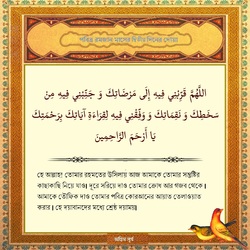 পবিত্র রমজান মাসের দ্বিতীয় দিনের দোয়া
اللَّهُمَّ قَرِّبْنِي فِيهِ إِلَى مَرْضَاتِكَ وَ جَنِّبْنِي فِيهِ مِنْ
سَخَطِكَ وَ نَقِمَاتِكَ وَ وَفِّقْنِي فِيهِ لِقِرَاءَةِ آيَاتِكَ بِرَحْمَتِكَ
يَا أَرْحَمَ الرَّاحِمِينَ
হে আল্লাহ! তোমার রহমতের উসিলায় আজ আমাকে তোমার সন্তুষ্টির
কাছাকাছি নিয়ে যাও। দূরে সরিয়ে দাও তোমার ক্রোধ আর গজব থেকে।
আমাকে তৌফিক দাও তোমার পবিত্র কোরআনের আয়াত তেলাওয়াত
করার। হে দয়াবানদের মধ্যে শ্রেষ্ঠ দয়াময়।